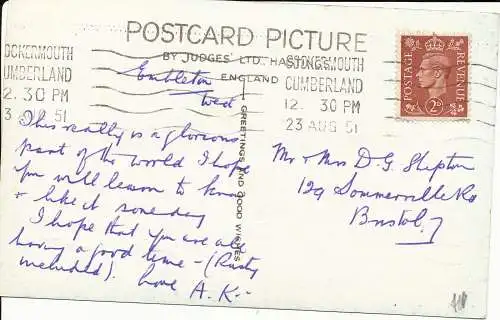 POSTCARD PICTURE
BY JUDGES' LTD., HASTINGS,
ENGLAND
OCKERMOUTH
UMBERLAND
2. 30 PM
3 51
CUMBERLAND
12. 30 PM
23 AUG 51
POSTAGE
REVENUE
2D
GREETINGS AND GOOD WISHES
Embleton
Wed
This really is a glorious
part of the world I hope
you will learn to know
& like it someday
I hope that you are all
having a good time - (Rusty
included). Love A.K.
Mr & Mrs D G Shepton
129 Sommerville Rd
Bristol 7